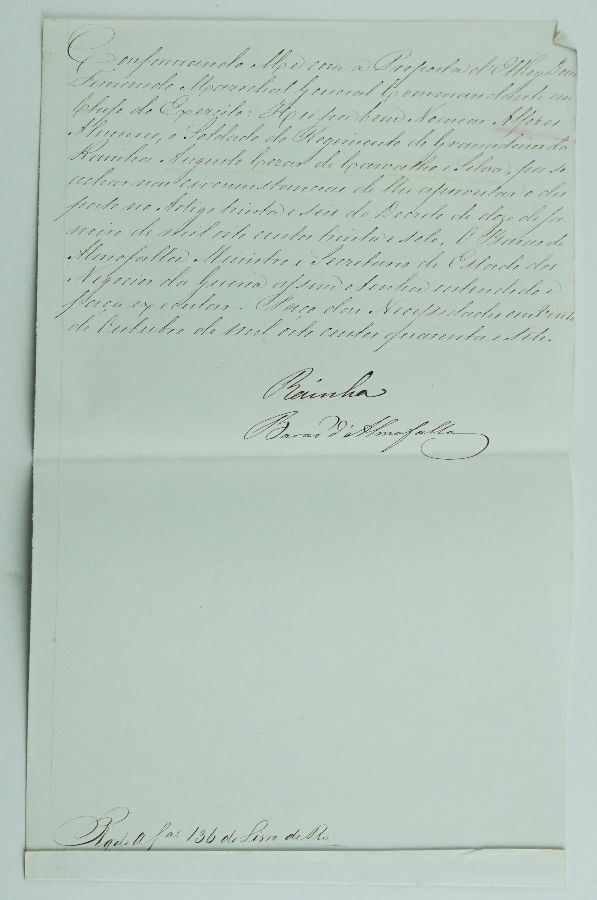 Conformando Me com a Proposta d'ElRey Dom
Fernando Marechal General Commandante em
Chefe do Exercito: Hei por bem Nomear Alferes
Alumno, o Soldado do Regimento de Granadeiros da
Rainha Augusto Cezar de Carvalho e Silva, por se
achar nas circunstancias de lhe aproveitar o dis
posto no Artigo trinta e seis do Decreto de doze de Ja
neiro de mil oito centos trinta e sete. O Barão de
Almofalla Ministro e Secretario de Estado dos
Negocios da Guerra assim o tenha entendido e
faça executar. Paço das Necessidades em vinte
de Outubro de mil oito centos quarenta e sete.
Rainha
Barão d'Almofalla
a f.as 136 do Livro de